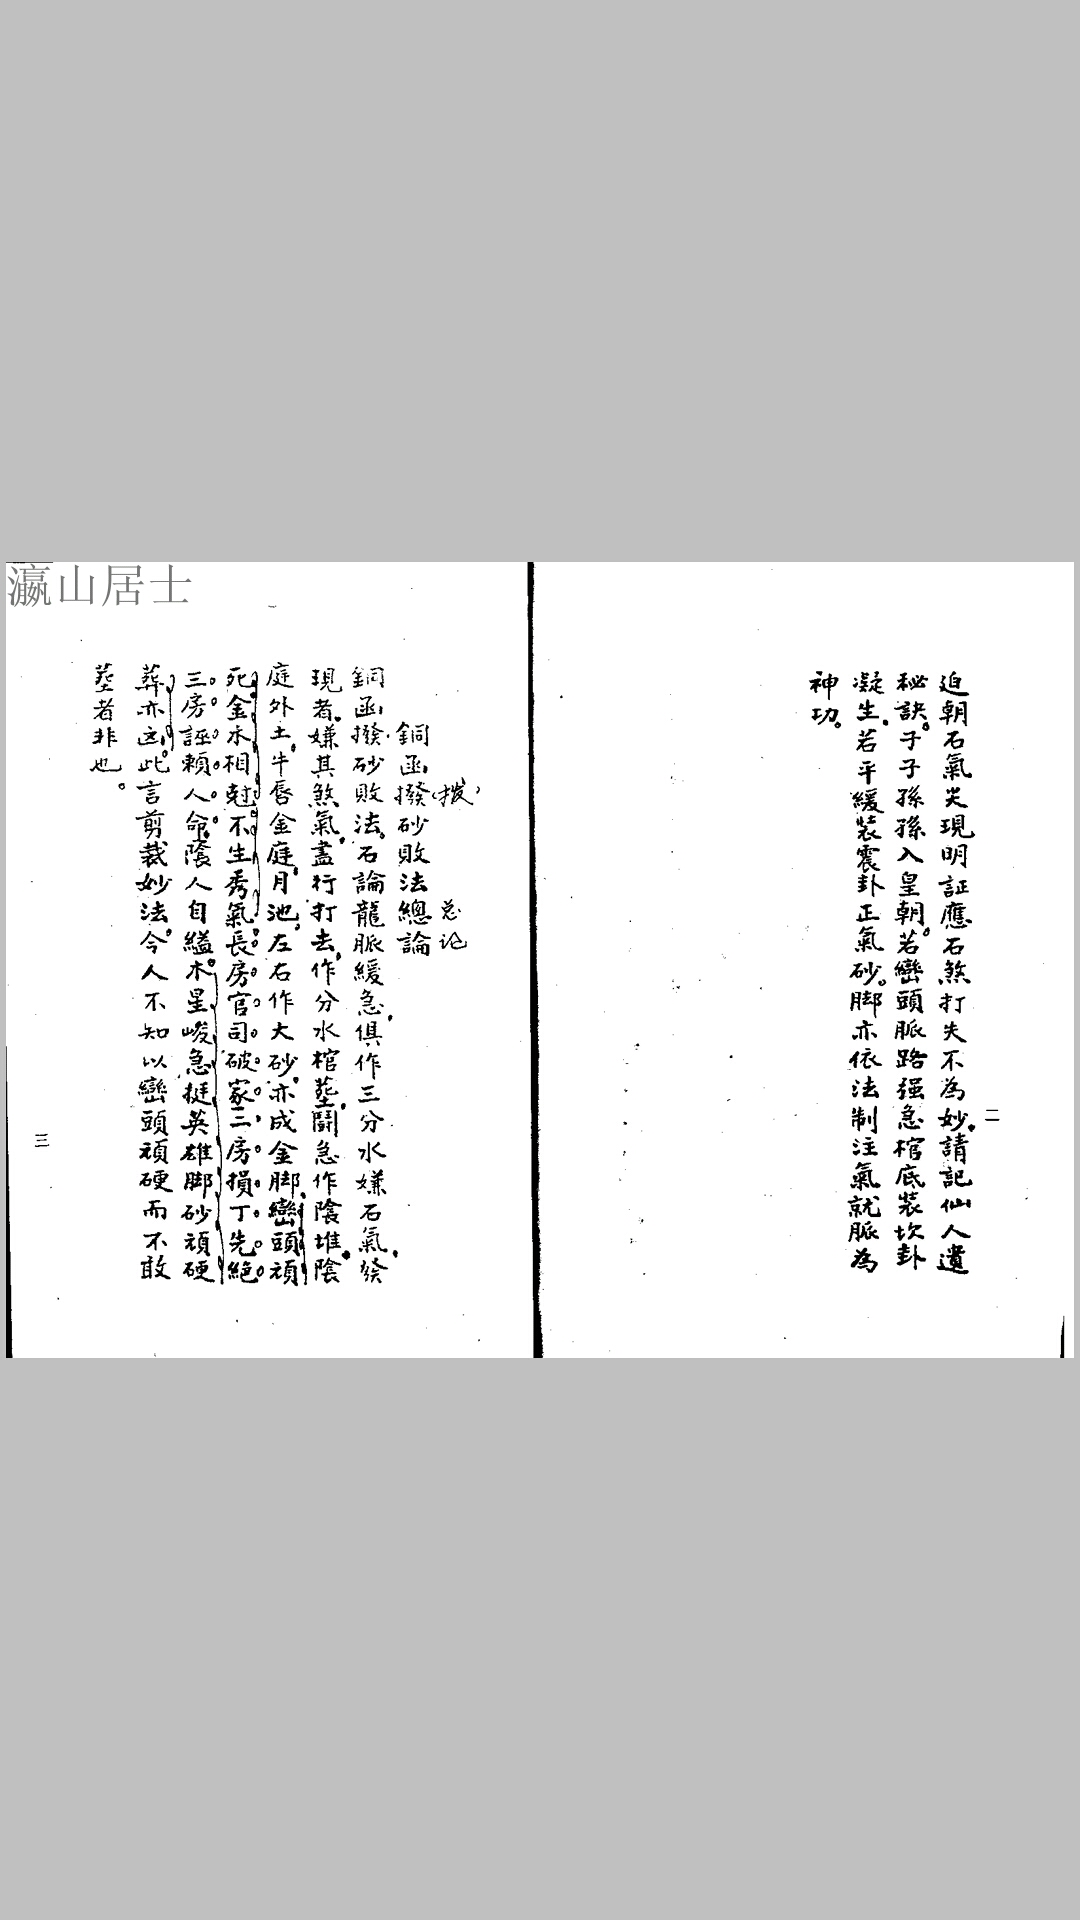 迫朝石氣炎現明証應石煞打失不為妙。請記仙人遺
秘訣。子子孫孫入皇朝。若巒頭脈路强急棺底裝坎卦
凝生。若平緩裝震卦正氣砂。脚亦依法制注氣就脈為
神功。
二
总论
(拨)
銅函撥砂敗法總論
銅函撥砂敗法。石論龍脈緩急，俱作三分水嫌石氣，發
現者。嫌其煞氣，盡行打去，作分水棺塟，鬪急作陰堆，陰
庭外土，牛唇金庭，月池，左右作大砂，亦成金脚，巒頭頑
死，金水相尅不生秀氣。長房官司破家三房損丁先絕
三房誣賴人命，陰人自縊。木星峻急挺英雄脚砂頑硬
葬亦凶。此言剪裁妙法。今人不知以巒頭頑硬而不敢
塟者非也。
三
瀛山居士